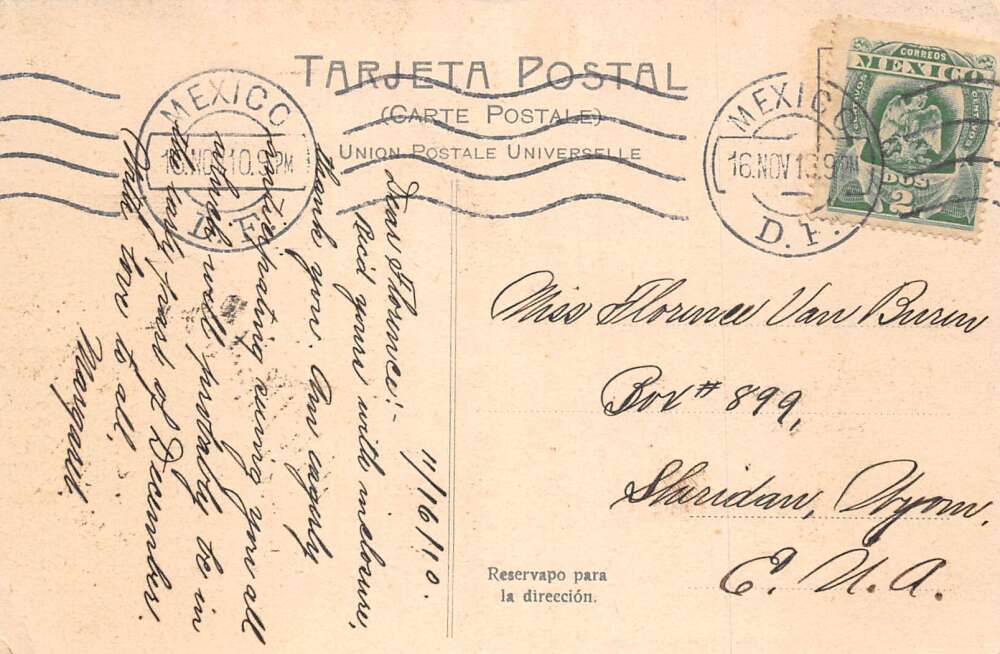 TARJETA POSTAL
(CARTE POSTALE)
UNION POSTALE UNIVERSELLE
MEXICO
16.NOV.10.9PM
D. F.
MEXICO
16.NOV.1 9PM
D. F.
CORREOS
MEXICO
CENTAVOS
CENTAVOS
DOS
2
11/16/10.
Dear Florence:-
Rec'd yours with inclosure,
thank you. Am eagerly
participating seeing you all
which will provably be in
the early part of December.
With love to all.
Margarid.
Miss Florence Van Buren
Box # 899,
Sheridan, Wyom,
E. U. A.
Reservapo para
la dirección.